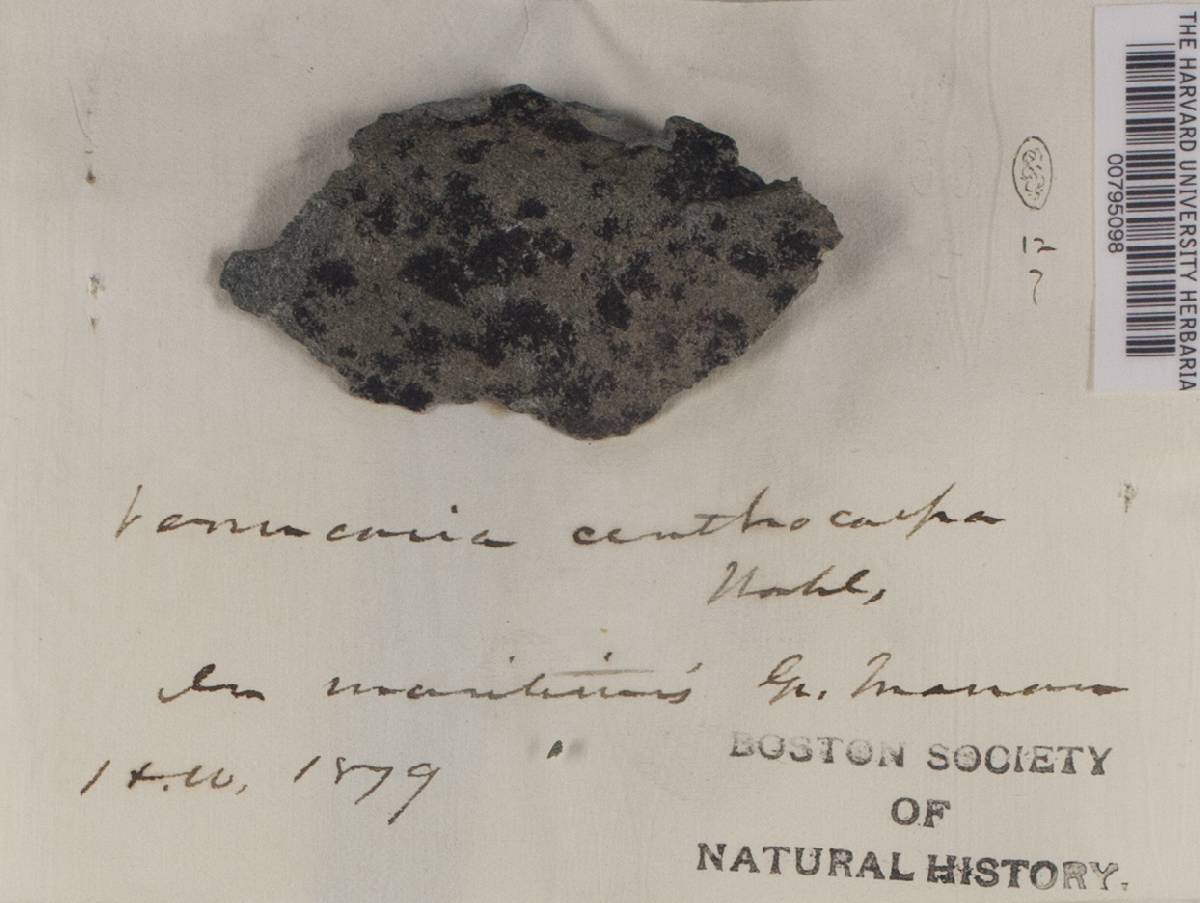 THE HARVARD UNIVERSITY HERBARIA
00795098
Verrucaria ceuthocarpa
Wahl.
In maritimis Gr. Manan
H.W. 1879
BOSTON SOCIETY
OF
NATURAL HISTORY.